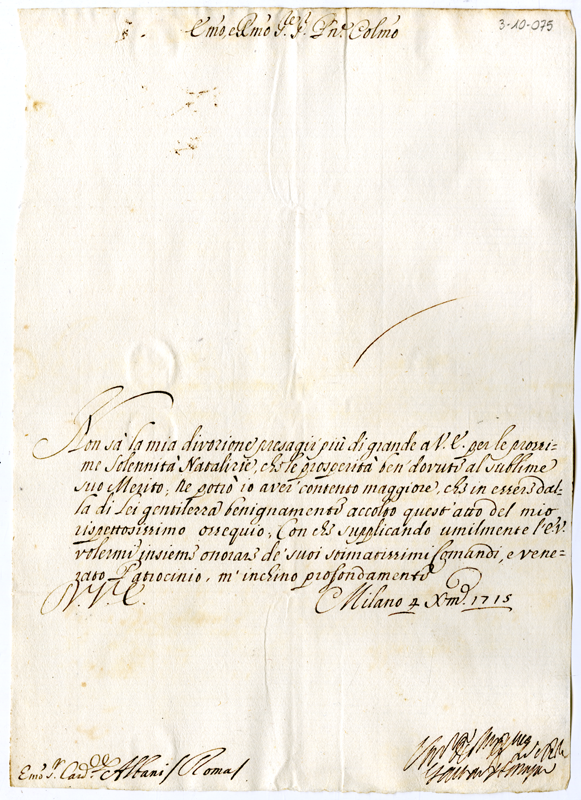 3-10-075
Emo, e Rmo Sig.r Sig.r Pñe Colmo
Non sà la mia divozione presagir più di grande a V. E. per le prossi-
me Solennità Natalizie, che le prosperità ben dovute al Sublime
suo Merito; ne potrò io aver contento maggiore, che in essere dal-
la di Lei gentilezza benignamente accolto quest'atto del mio
rispettosissimo ossequio; Con che supplicando umilmente l'E. V.
volermi insieme onorare de' suoi stimatissimi Comandi, e vene-
rato Patrocinio, m'inchino profondamente
D. V. E.
Milano 4 Xm̃e 1715
Emo Sr. Card.le Albani / Roma /